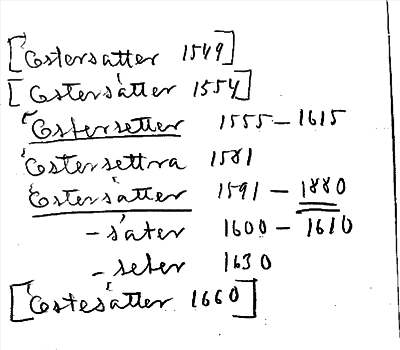 [Östersätter 1549]
[Östersätter 1554]
Östersetter 1555 – 1615
Östersettra 1581
Östersätter 1591 – 1880
– säter 1600 – 1610
– seter 1630
[Östesätter 1660]